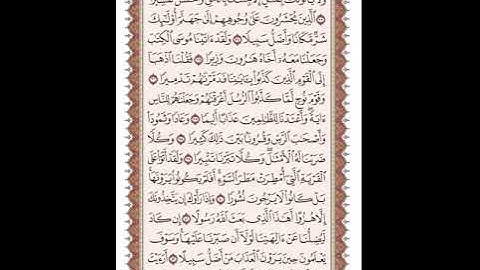 ٱلَّذِينَ يُحْشَرُونَ عَلَىٰ وُجُوهِهِمْ إِلَىٰ جَهَنَّمَ أُو۟لَٰٓئِكَ
شَرٌّ مَّكَانًا وَأَضَلُّ سَبِيلًا ۝ وَلَقَدْ ءَاتَيْنَا مُوسَى ٱلْكِتَٰبَ
وَجَعَلْنَا مَعَهُۥٓ أَخَاهُ هَٰرُونَ وَزِيرًا ۝ فَقُلْنَا ٱذْهَبَآ
إِلَى ٱلْقَوْمِ ٱلَّذِينَ كَذَّبُوا۟ بِـَٔايَٰتِنَا فَدَمَّرْنَٰهُمْ تَدْمِيرًا ۝
وَقَوْمَ نُوحٍ لَّمَّا كَذَّبُوا۟ ٱلرُّسُلَ أَغْرَقْنَٰهُمْ وَجَعَلْنَٰهُمْ لِلنَّاسِ
ءَايَةً ۖ وَأَعْتَدْنَا لِلظَّٰلِمِينَ عَذَابًا أَلِيمًا ۝ وَعَادًا وَثَمُودَا۟
وَأَصْحَٰبَ ٱلرَّسِّ وَقُرُونًۢا بَيْنَ ذَٰلِكَ كَثِيرًا ۝ وَكُلًّا
ضَرَبْنَا لَهُ ٱلْأَمْثَٰلَ ۖ وَكُلًّا تَبَّرْنَا تَتْبِيرًا ۝ وَلَقَدْ أَتَوْا۟ عَلَى
ٱلْقَرْيَةِ ٱلَّتِىٓ أُمْطِرَتْ مَطَرَ ٱلسَّوْءِ ۚ أَفَلَمْ يَكُونُوا۟ يَرَوْنَهَا ۚ
بَلْ كَانُوا۟ لَا يَرْجُونَ نُشُورًا ۝ وَإِذَا رَأَوْكَ إِن يَتَّخِذُونَكَ
إِلَّا هُزُوًا أَهَٰذَا ٱلَّذِى بَعَثَ ٱللَّهُ رَسُولًا ۝ إِن كَادَ
لَيُضِلُّنَا عَنْ ءَالِهَتِنَا لَوْلَآ أَن صَبَرْنَا عَلَيْهَا ۚ وَسَوْفَ
يَعْلَمُونَ حِينَ يَرَوْنَ ٱلْعَذَابَ مَنْ أَضَلُّ سَبِيلًا ۝ أَرَءَيْتَ